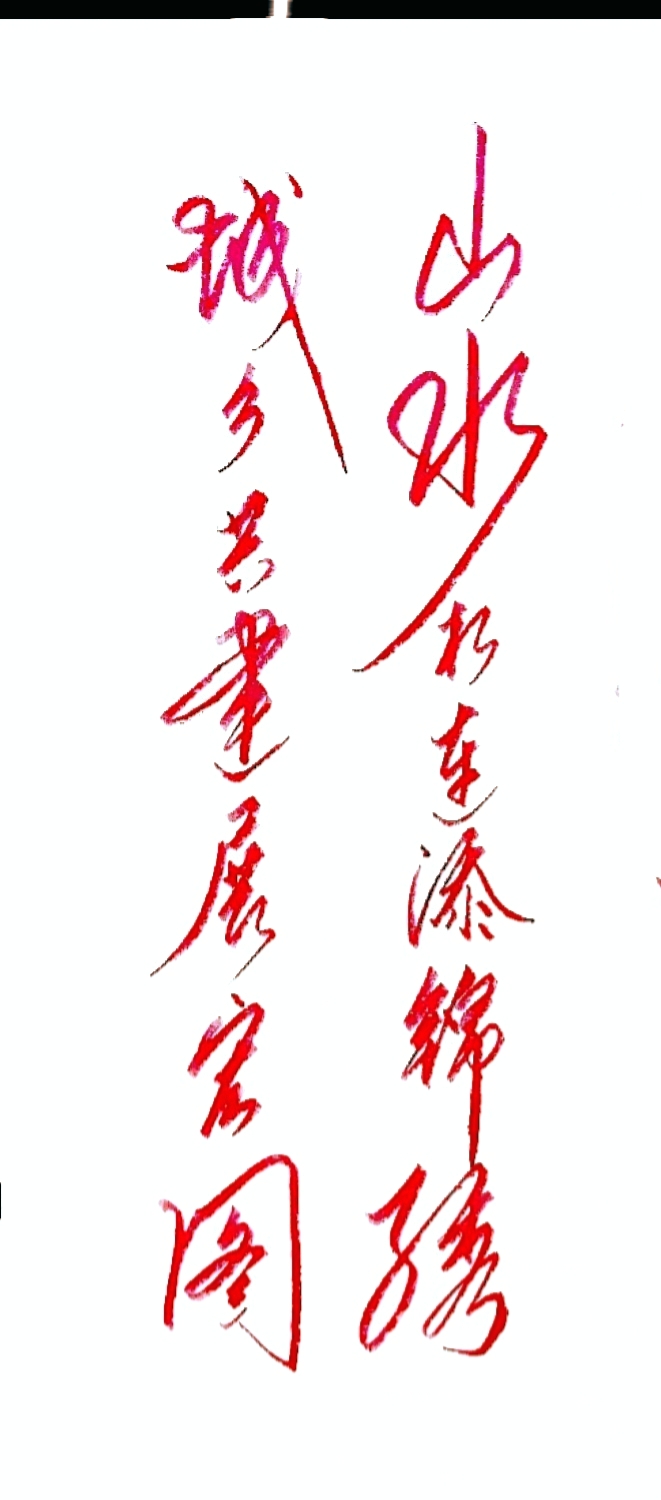 山水相连添锦绣
城乡共建展宏图